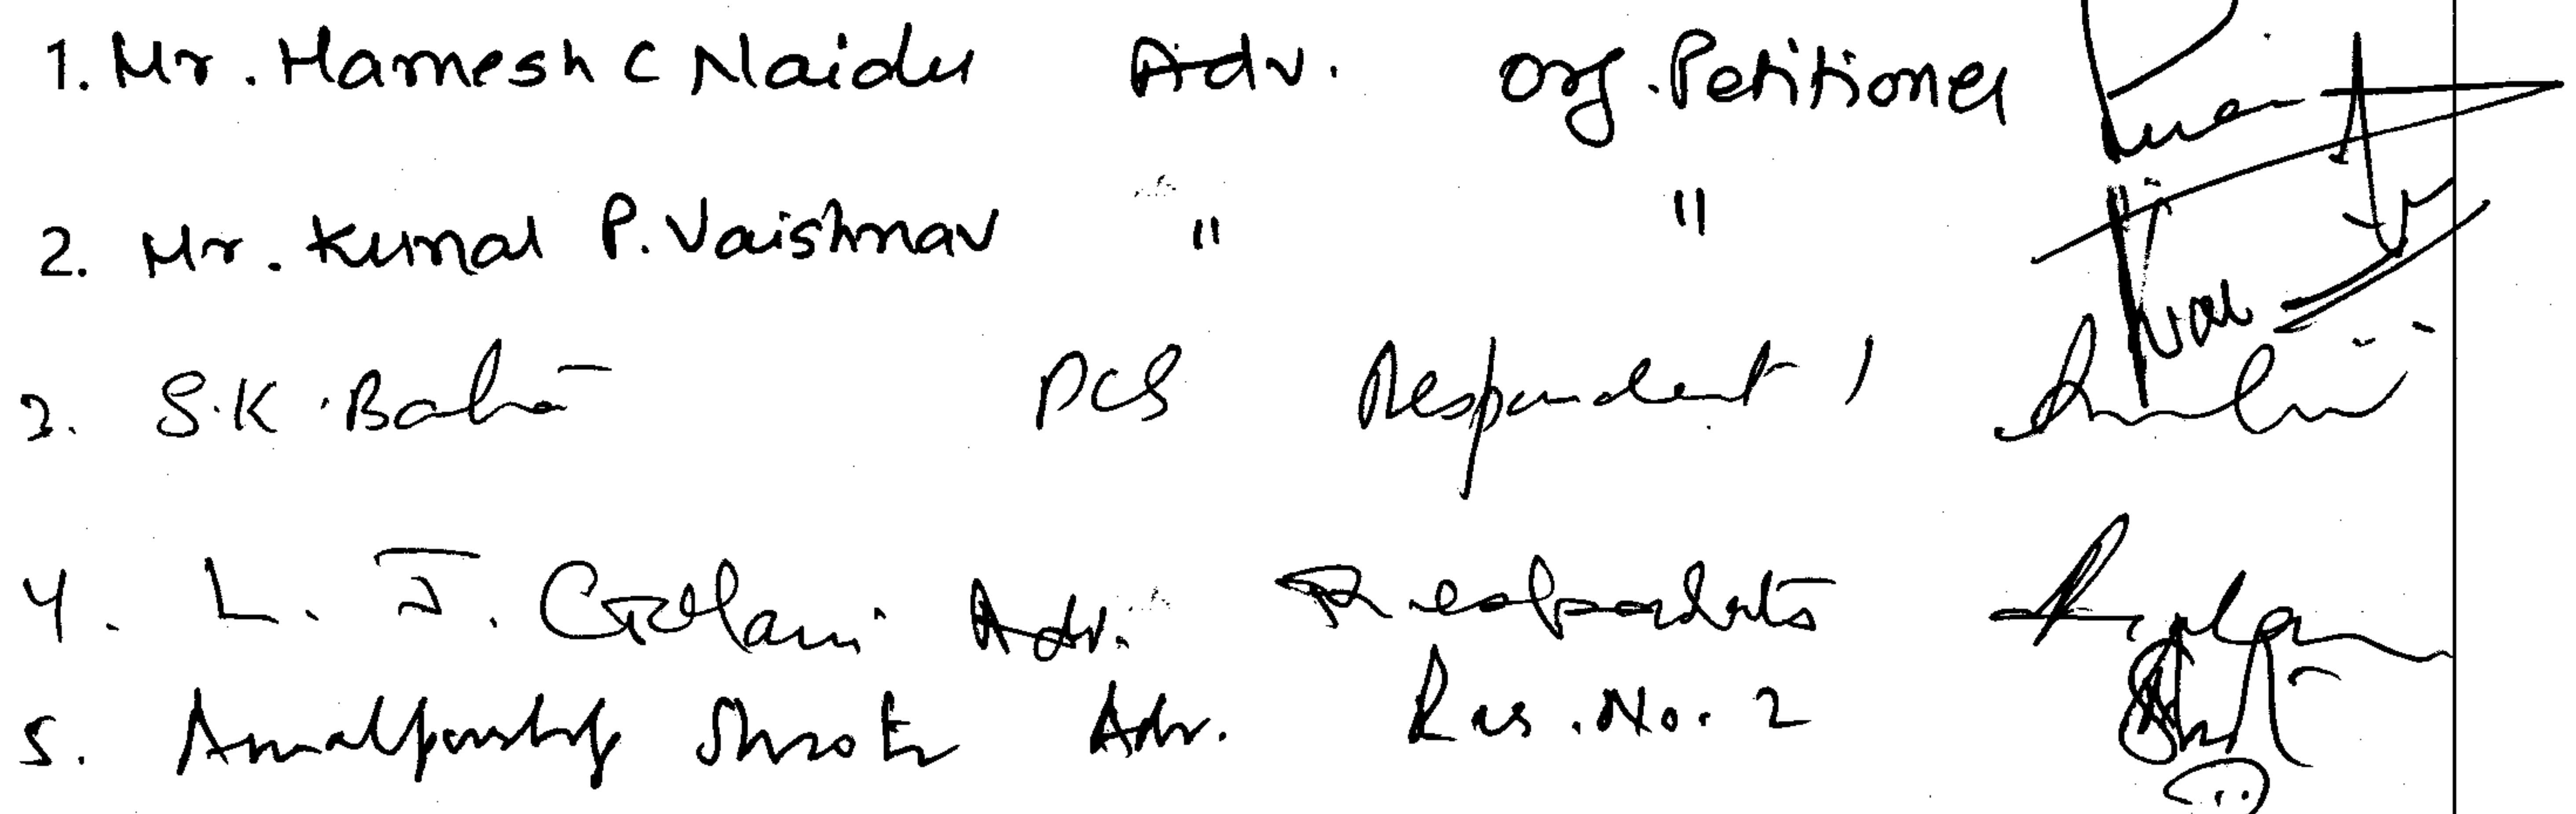 1. Mr. Hamesh C Naidu Adv. Org. Petitioner
2. Mr. Kunal P. Vaishnav " "
3. S.K. Batra PCS Respondent 1
4. L. J. Adv. Respondents
5. Adv. Res. No. 2